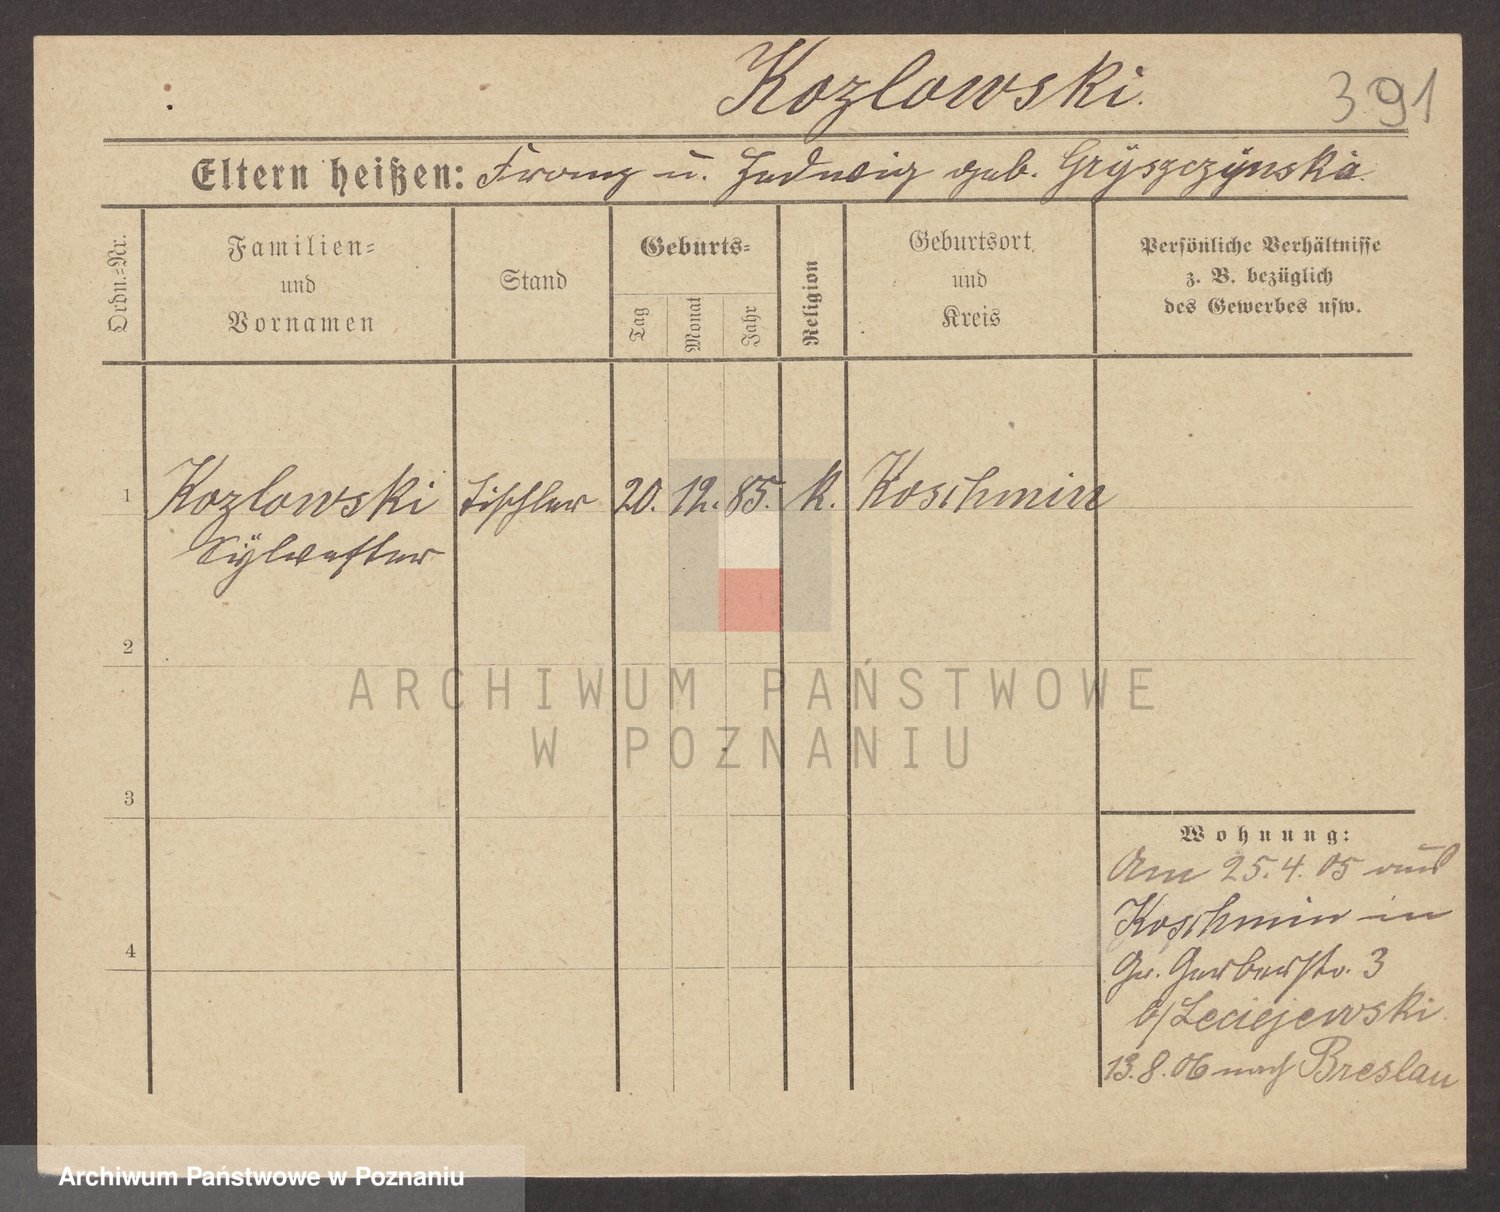 Kozlowski.
391
Eltern heißen: Franz u. Hedwig geb. Gryszczynska.
Ordn.-Nr.
Familien-
und
Vornamen
Stand
Geburts-
Tag
Monat
Jahr
Religion
Geburtsort
und
Kreis
Persönliche Verhältnisse
z. B. bezüglich
des Gewerbes usw.
1 Kozlowski Tischler 20. 12. 85. k. Koschmin
Sylwester
2
3
4
ARCHIWUM PAŃSTWOWE
W POZNANIU
Wohnung:
Am 25.4.05 aus
Koschmin in
Gr. Gerberstr. 3
b/Leciejewski.
13.8.06 nach Breslau
Archiwum Państwowe w Poznaniu